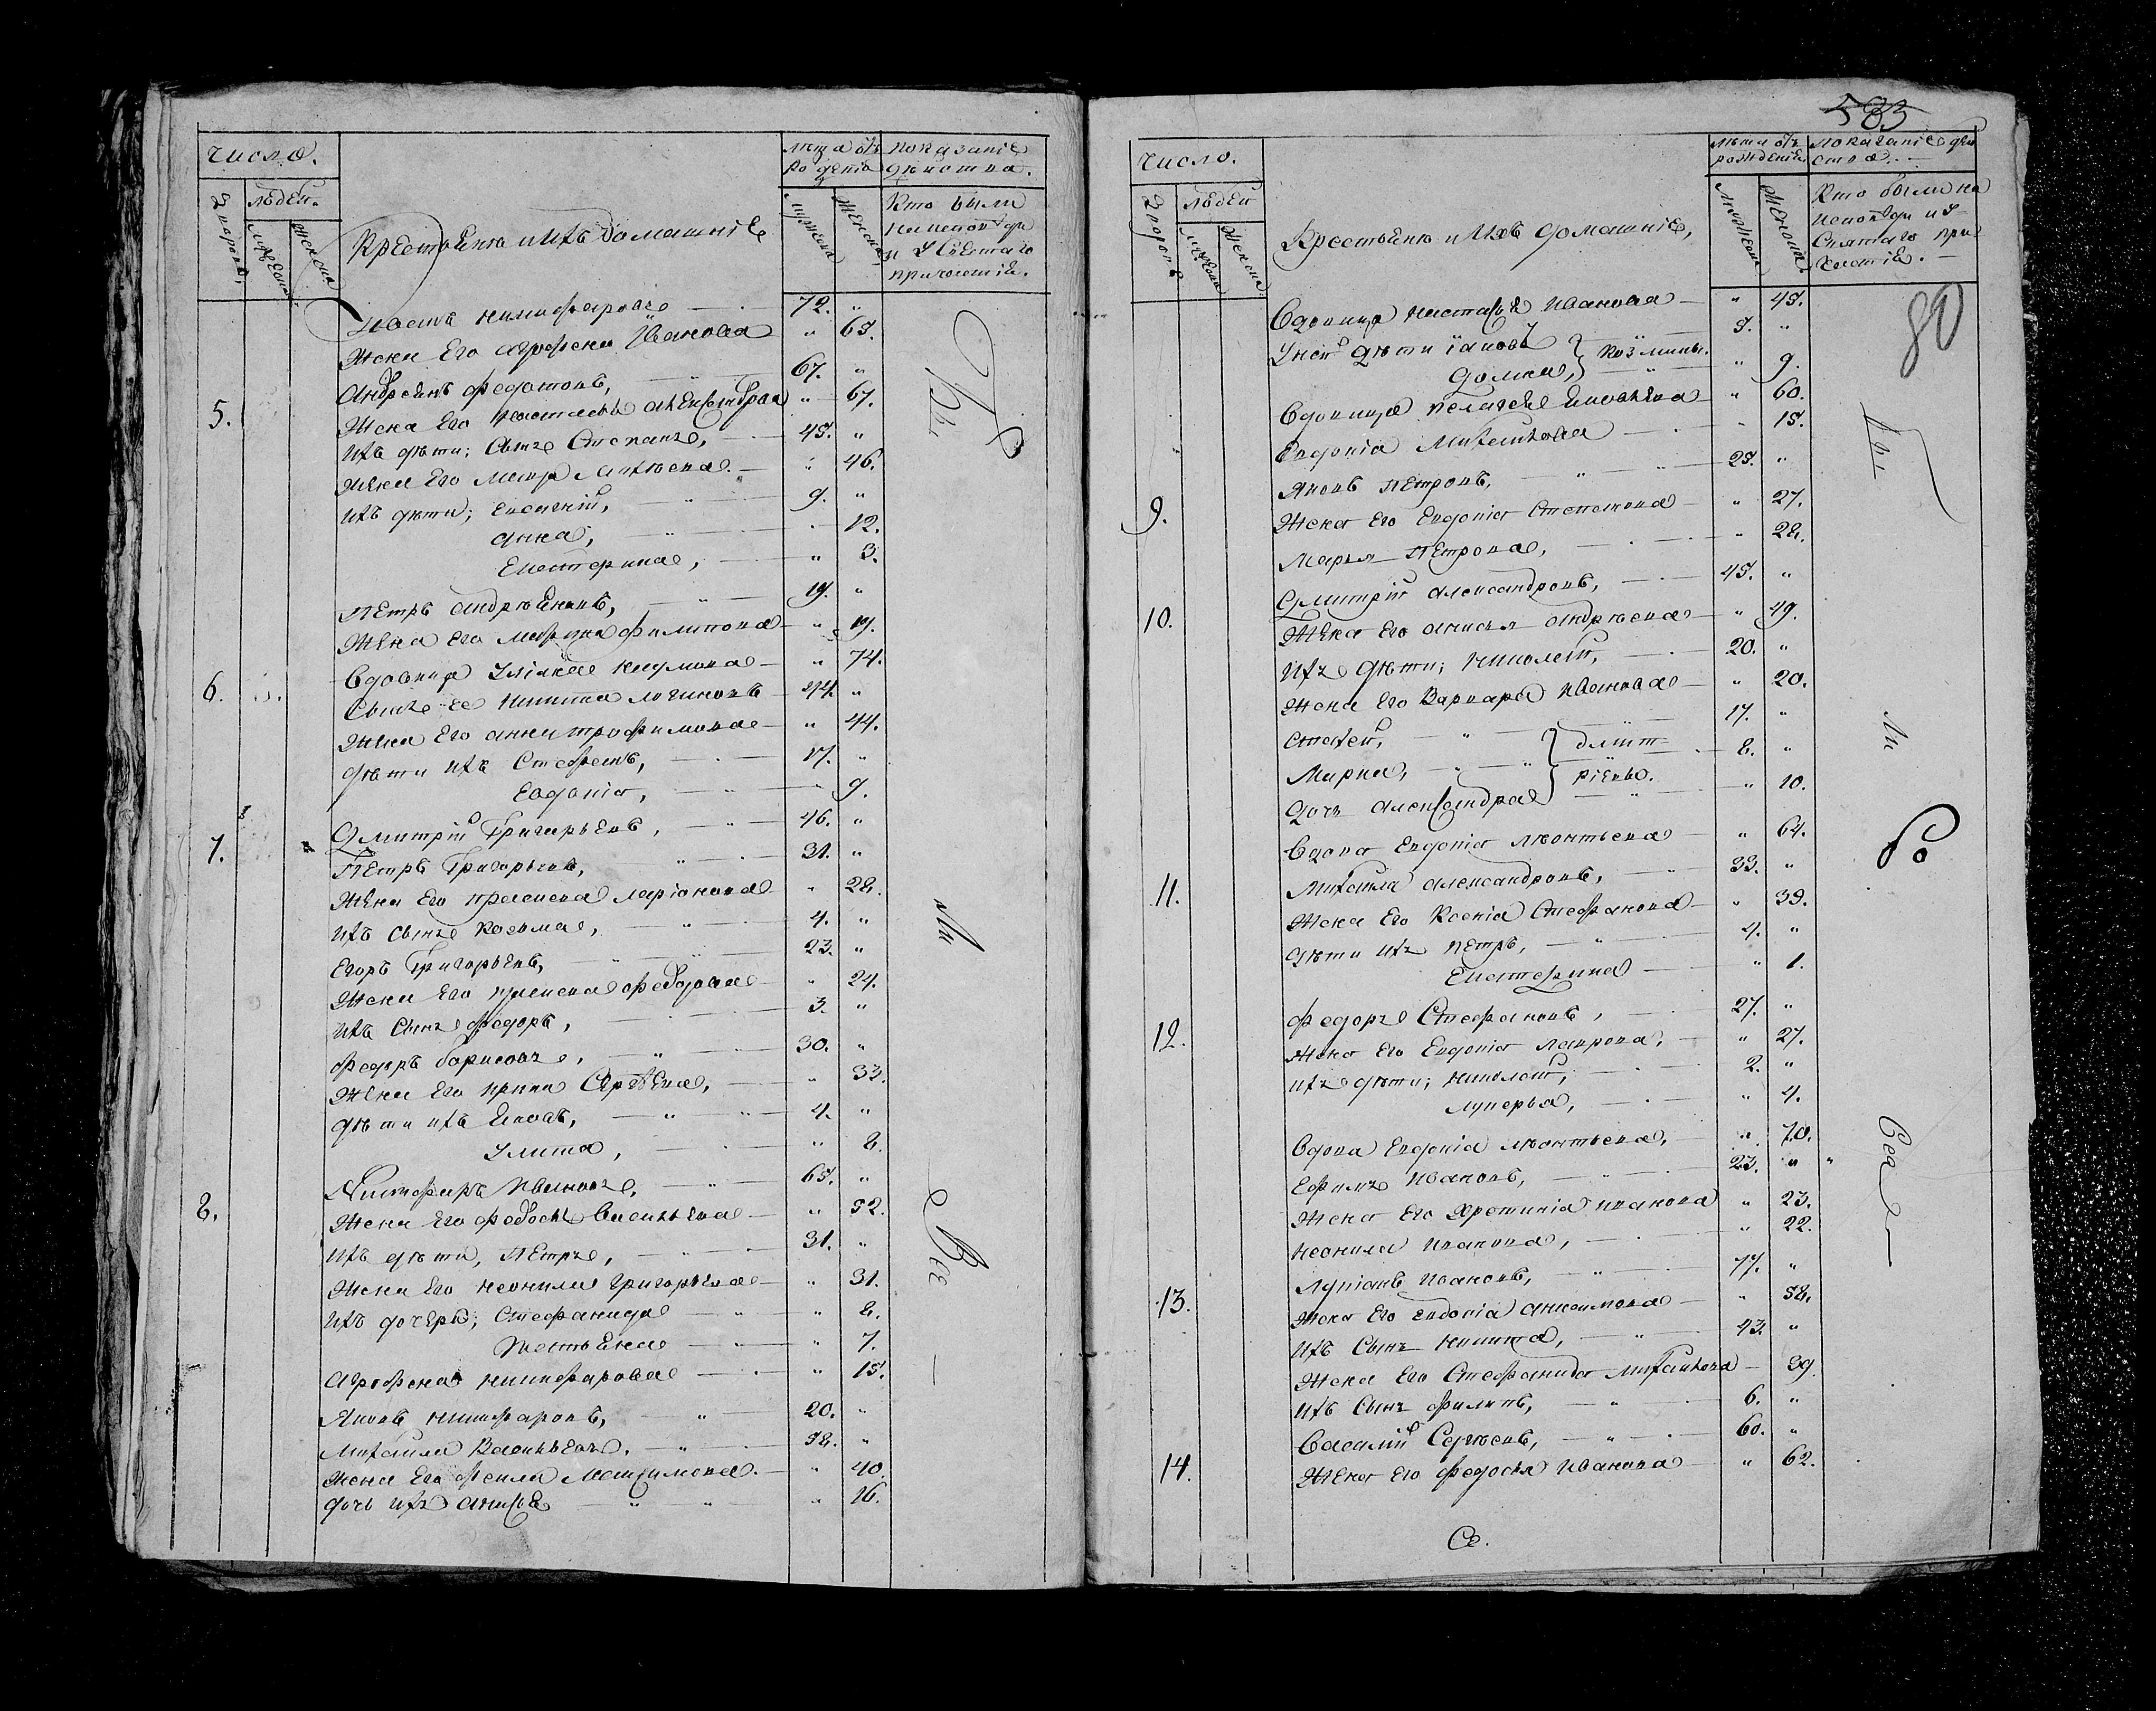 число.
лѣта отъ рождѣнія
показаніе
дѣйства.
Дворовъ
людей.
мужеска
женска
Крестьяне и ихъ домашніе
мужеска
женска
Кто были
на исповѣди
и у Святаго
причастія.
Никифаровъ 72. "
Жена Его Агрофена Иванова " 65.
Андреянъ Федотовъ, 67. "
5. Жена Его Настасья Александрова " 67.
ихъ дѣти; Сынъ Степанъ, 45. "
Жена Его Мавра " 46.
ихъ дѣти; 9. "
Анна, 12.
Екатерина, " 3.
Петръ Андрѣяновъ, 19. "
Жена Его Марина Филипова " 19.
Вдовица Уліяна Наумова " 74.
6. Сынъ ее Никита Логиновъ 44. "
Жена Его Анна Трофимова " 44.
дѣти ихъ Стефанъ, 17. "
Евдокія, 9.
Дмитрій Григорьевъ, 46. "
7. Петръ Григорьевъ, 31. "
Жена Его Прасковья Ларіонова " 28.
ихъ сынъ Козьма, 4. "
Егоръ Григорьевъ, 23. "
Жена Его Прасковья Федорова " 24.
ихъ Сынъ Федоръ, 3. "
Федоръ Борисовъ, 30. "
Жена Его Ирина Сергѣева, " 33.
дѣти ихъ Яковъ, 4. "
Улита, " 8.
Никифаръ Ивановъ, 65. "
8. Жена Его Федосья Васильева " 52.
ихъ дѣти, Петръ, 31. "
Жена Его Неонила Григорьева " 31.
ихъ дочери; Стефанида " 8.
Татьяна " 7.
Агрофена Никифарова " 15.
Яковъ Никифаровъ, 20. "
Михаила Васильевъ, 38. "
Жена Его Фекла Максимова " 40.
дочь ихъ Анисья " 16.
Бы
ли
Всѣ
583
число.
лѣта отъ рождѣнія
показаніе дѣй
ства.
Дворовъ
людей
мужеска
женска
Крестьяне и Ихъ домашніе,
мужеска
женска
Кто были на
исповѣди и у
Святаго при
частія.
80
Вдовица Настасья Иванова " 45.
У ней дѣти Іаковъ } Козмины. 5. "
Домна, " 9.
Вдовица Пелагея Яковлева " 60.
Евдокія Михайлова " 15.
Яковъ Петровъ, 25. "
9. Жена Его Евдокія Степанова " 27.
Марья Петрова, " 28.
Дмитрій Александровъ, 45. "
10. Жена Его Анисья Андрѣева " 49.
ихъ дѣти; Николай, 20. "
Жена Его Варвара Иванова " 20.
17. "
Марка, } Дмит- 8. "
дочь Александра } ріевы. " 10.
Вдова Евдокія Леонтьева " 64.
11. Михаила Александровъ, 33. "
Жена Его Ксенія Стефанова " 39.
дѣти ихъ Петръ, 4. "
Екатерина " 1.
Федоръ Стефановъ, 27. "
12. Жена Его Евдокія Лаврова, " 27.
ихъ дѣти; Николай, 2. "
Лукерья, " 4.
Вдова Евдокія Леонтьева, " 70.
Ефимъ Ивановъ, 23. " "
Жена Его Хретинія Иванова " 23.
Неонила Иванова, " 22.
Лукіанъ Ивановъ, 77. "
13. Жена Его Евдокія Анисимова " 58.
ихъ Сынъ Никита, 43. "
Жена Его Стефанида Михайлова 39.
ихъ Сынъ Филипъ, 6. "
Василій Сергѣевъ, 60. "
14. Жена Его Федосья Иванова " 62.
Бы
ли
Во
Все
Се.